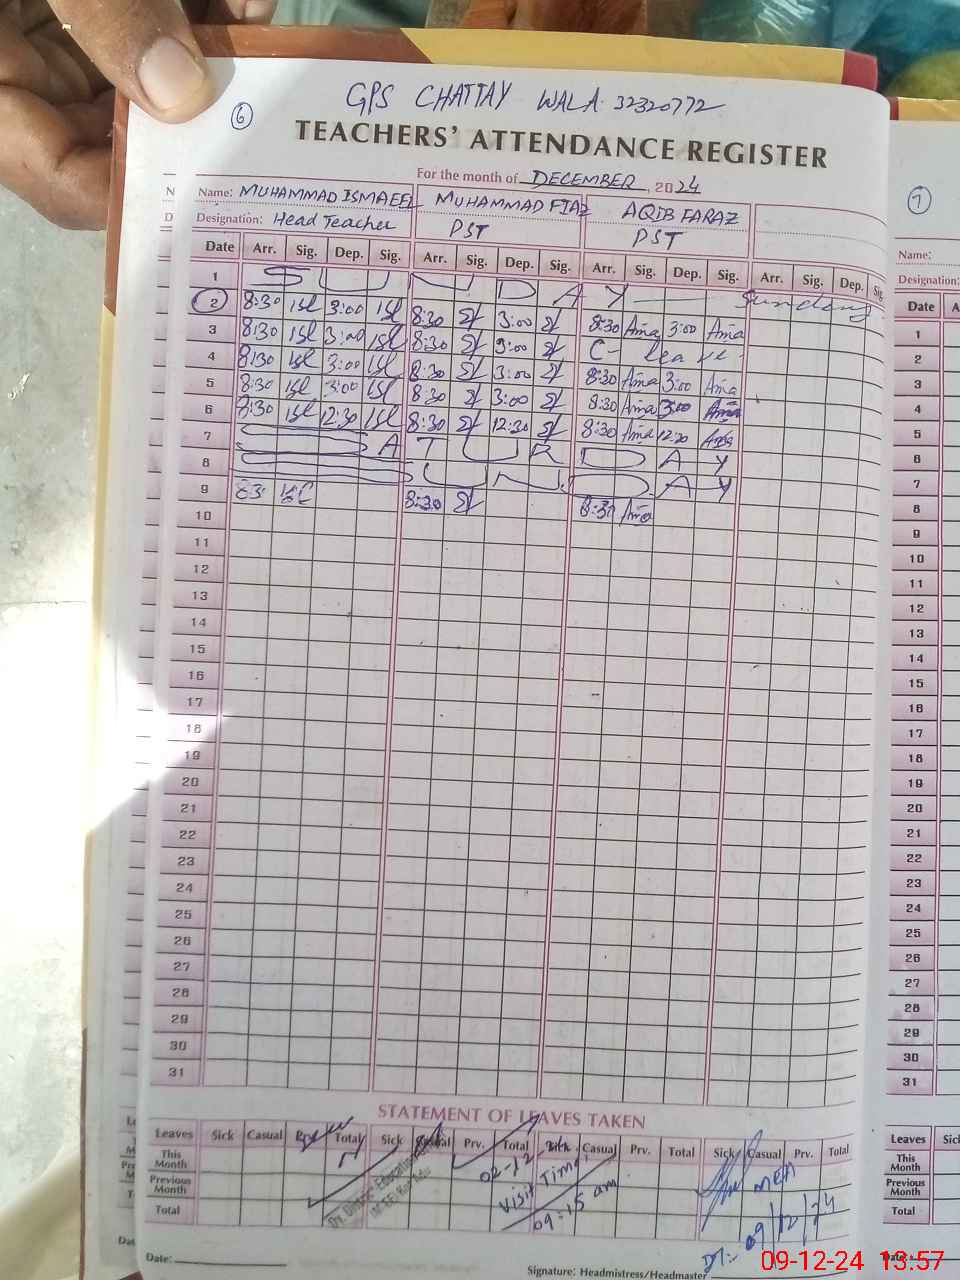 GPS CHATTAY WALA 32320772
6
TEACHERS' ATTENDANCE REGISTER
For the month of DECEMBER, 2024
Name: MUHAMMAD ISMAEEL MUHAMMAD FIAZ AQIB FARAZ
Designation: Head Teacher PST PST
Date Arr. Sig. Dep. Sig. Arr. Sig. Dep. Sig. Arr. Sig. Dep. Sig. Arr. Sig. Dep. Sig.
1 S U N D A Y Sunday
2 8:30 3:00 8:30 3:00 8:30 3:00
3 8:30 3:00 8:30 3:00 C- leave
4 8:30 3:00 8:30 3:00 8:30 3:00
5 8:30 3:00 8:30 3:00 8:30 3:00
6 8:30 12:30 8:30 12:30 8:30 12:30
7 S A T U R D A Y
8 S U N D A Y
9 8:30 8:30 8:30
10
11
12
13
14
15
16
17
18
19
20
21
22
23
24
25
26
27
28
29
30
31
STATEMENT OF LEAVES TAKEN
Leaves Sick Casual Prv. Total Sick Casual Prv. Total Sick Casual Prv. Total Sick Casual Prv. Total
This Month
Previous Month
Total
Dy. District Education
02-12-24
Visit Time:
09:15 am
MEA
DT:- 09/12/24
Date:
Signature: Headmistress/Headmaster
7
Name:
Designation:
Date
1
2
3
4
5
6
7
8
9
10
11
12
13
14
15
16
17
18
19
20
21
22
23
24
25
26
27
28
29
30
31
Leaves
This Month
Previous Month
Total
Date:
09-12-24 13:57